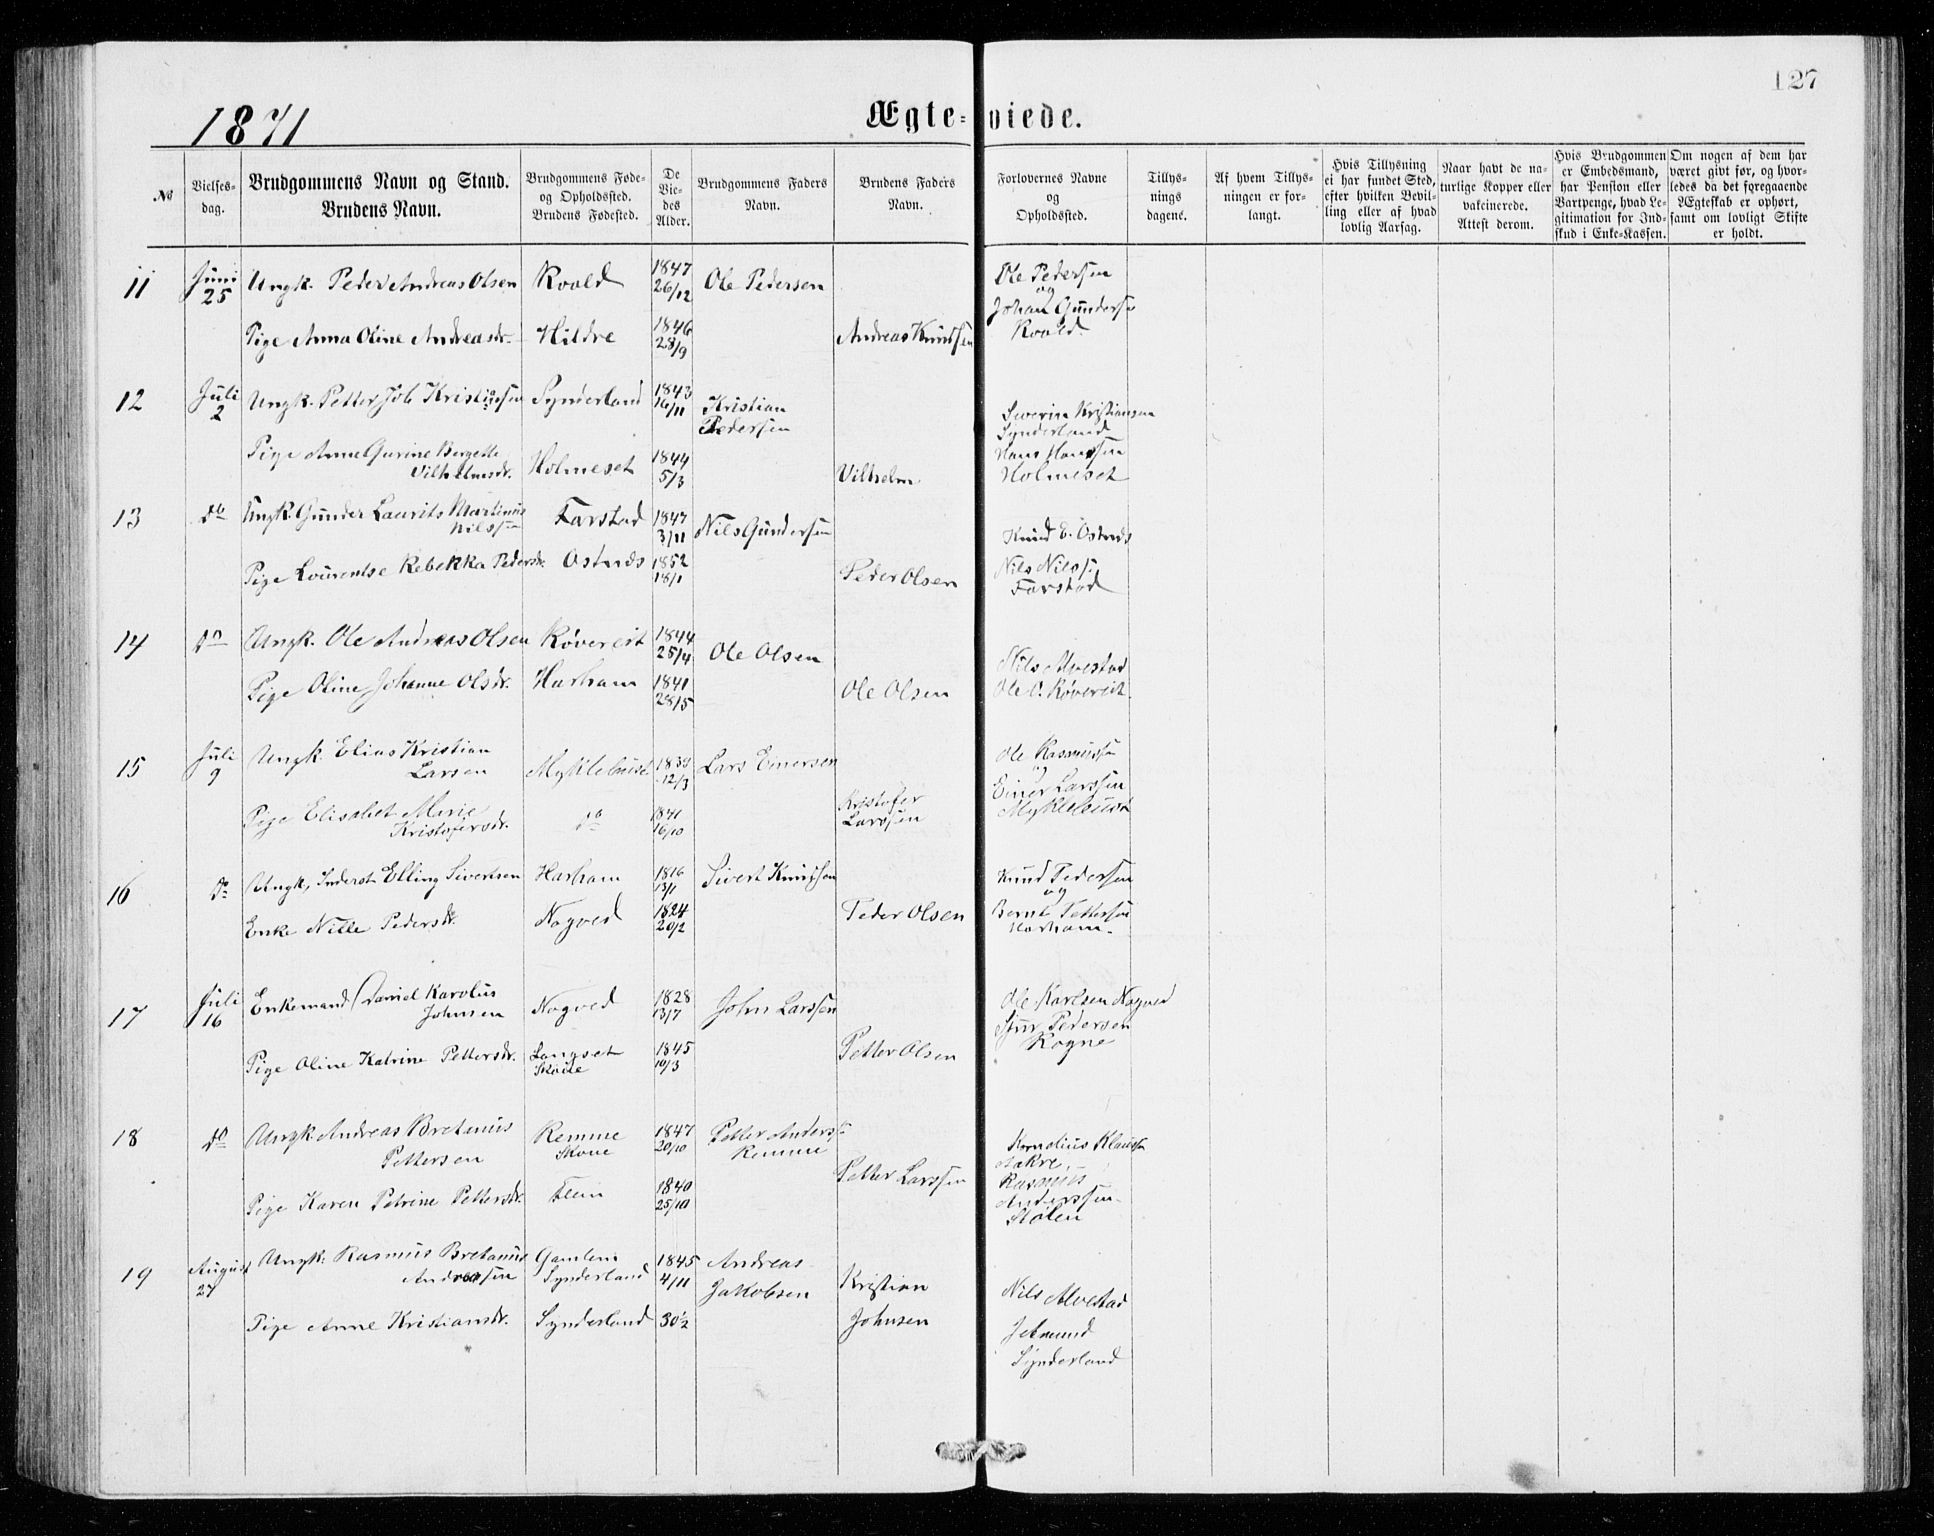 127
1871
Ægte-viede.
No
Vielses-
dag.
Brudgommens Navn og Stand.
Brudens Navn.
Brudgommens Føde-
og Opholdssted.
Brudens Fødested.
De
Vie-
des
Alder.
Brudgommens Faders
Navn.
Brudens Faders
Navn.
Forlovernes Navne
og
Opholdssted.
Tillys-
nings
dagene.
Af hvem Tillys-
ningen er for-
langt.
Hvis Tillysning
ei har fundet Sted,
efter hvilken Bevil-
ling eller af hvad
lovlig Aarsag.
Naar havt de na-
turlige Kopper eller
vakcinerede.
Attest derom.
Hvis Brudgommen
er Embedsmand,
har Pension eller
Vartpenge, hvad Le-
gitimation for Ind-
skud i Enke-Kassen.
Om nogen af dem har
været givt før, og hvor-
ledes da det foregaaende
Ægteskab er ophørt,
samt om lovligt Skifte
er holdt.
11 Juni 25 Ungk. Peder Andreas Olsen Roald 1847 26/12 Ole Pedersen
Ole Pedersen
og
Johan Gunderse
Roald.
Pige Anna Oline Andreasdr. Hildre 1846 28/9 Andreas Knudsen
12 Juli 2 Ungk. Petter Job Kristiansen Synderland 1843 16/11 Kristian
Pedersen
Severin Kristiansen
Synderland
Hans Hanssen
Holmeset
Pige Anne Gurine Bergette
Vilhelmsdr. Holmeset 1844 5/3 Vilhelm
13 do Ungk. Gunder Laurits Martinus
Nilssen Farstad 1847 3/11 Nils Gundersen
Knud E. Ostnes
Nils Nilss.
Farstad
Pige Lourentse Rebekka Pedersdr. Ostnes 1852 18/1 Peder Olsen
14 do Ungk. Ole Andreas Olsen Røvereit 1844 25/4 Ole Olsen
Nils Alvestad
Ole O. Røvereit.
Pige Oline Johanne Olsdr. Harham 1841 28/5 Ole Olsen
15 Juli 9 Ungk. Elias Kristian
Larsen Myklebust 12/3 Lars Einersen
Ole Rasmussen
og
Einer Larssen
Myklebust
Pige Elisabet Marie
Kristofersdr. do 1841 16/10 Kristofer
Larssen
16 do Ungk, Inderst Elling Sivertsen Harham 1816 13/1 Sivert Knudsen
Knud Pedersen
og
Bernt Pettersen
Harham.
Enke Nille Pedersdr. Nogved 1824 20/2 Peder Olsen
17 Juli 16 Enkemand Daniel Karolus
Johnsen Nogved 1828 13/7 John Larssen
Ole Karlsen Nogved
Sjur Pedersen
Rogne
Pige Oline Katrine Pettersdr. Longset
Skoue 1845 10/3 Petter Olsen
18 do Ungk. Andreas Bretanus
Pettersen Remme
Skoue 1847 20/10 Petter Anderss.
Remme
Kornelius Klauss.
Aakre,
Rasmus
Anderssen
Stølen
Pige Karen Petrine Pettersdr. Flem 1840 25/10 Petter Larssen
19 August 27 Ungk. Rasmus Bretanus
Andreassen Gamlem
Synderland 1845 4/11 Andreas
Jakobsen
Nils Alvestad
Jetmund
Synderland
Pige Anne Kristiansdr. Synderland 30½ Kristian
Johnsen